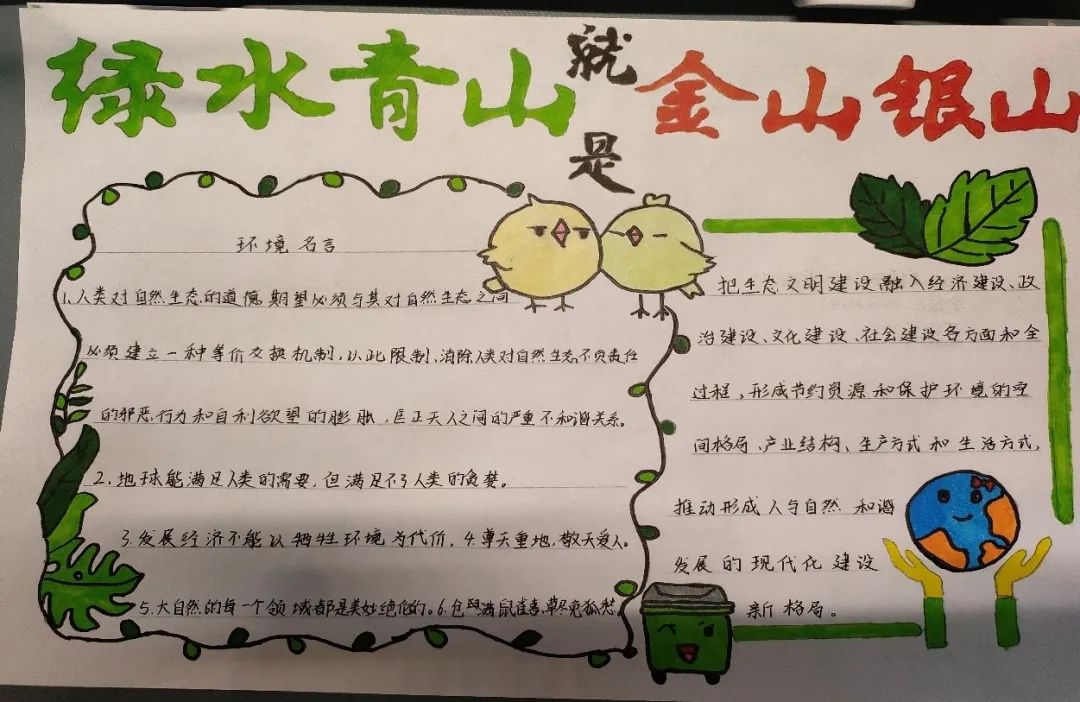 绿水青山就是金山银山
环境名言
1.人类对自然生态的道德期望必须与其对自然生态之间
必须建立一种等价交换机制,以此限制、消除人类对自然生态不负责任
的邪恶行为和自利欲望的膨胀,匡正天人之间的严重不和谐关系。
2.地球能满足人类的需要,但满足不了人类的贪婪。
3.发展经济不能以牺牲环境为代价,4.尊天重地,敬天爱人。
5.大自然的每一个领域都是美妙绝伦的。6.仓满鼠雀喜,草尽兔狐愁。
把生态文明建设融入经济建设、政
治建设、文化建设、社会建设各方面和全
过程,形成节约资源和保护环境的空
间格局、产业结构、生产方式和生活方式,
推动形成人与自然和谐
发展的现代化建设
新格局。